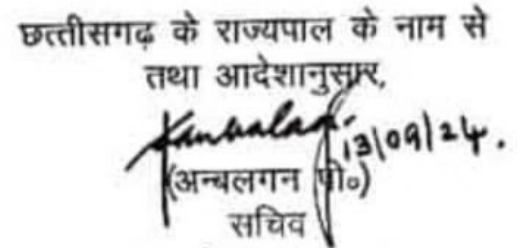 छत्तीसगढ़ के राज्यपाल के नाम से
तथा आदेशानुसार,
13/09/24.
(अन्बलगन पी०)
सचिव